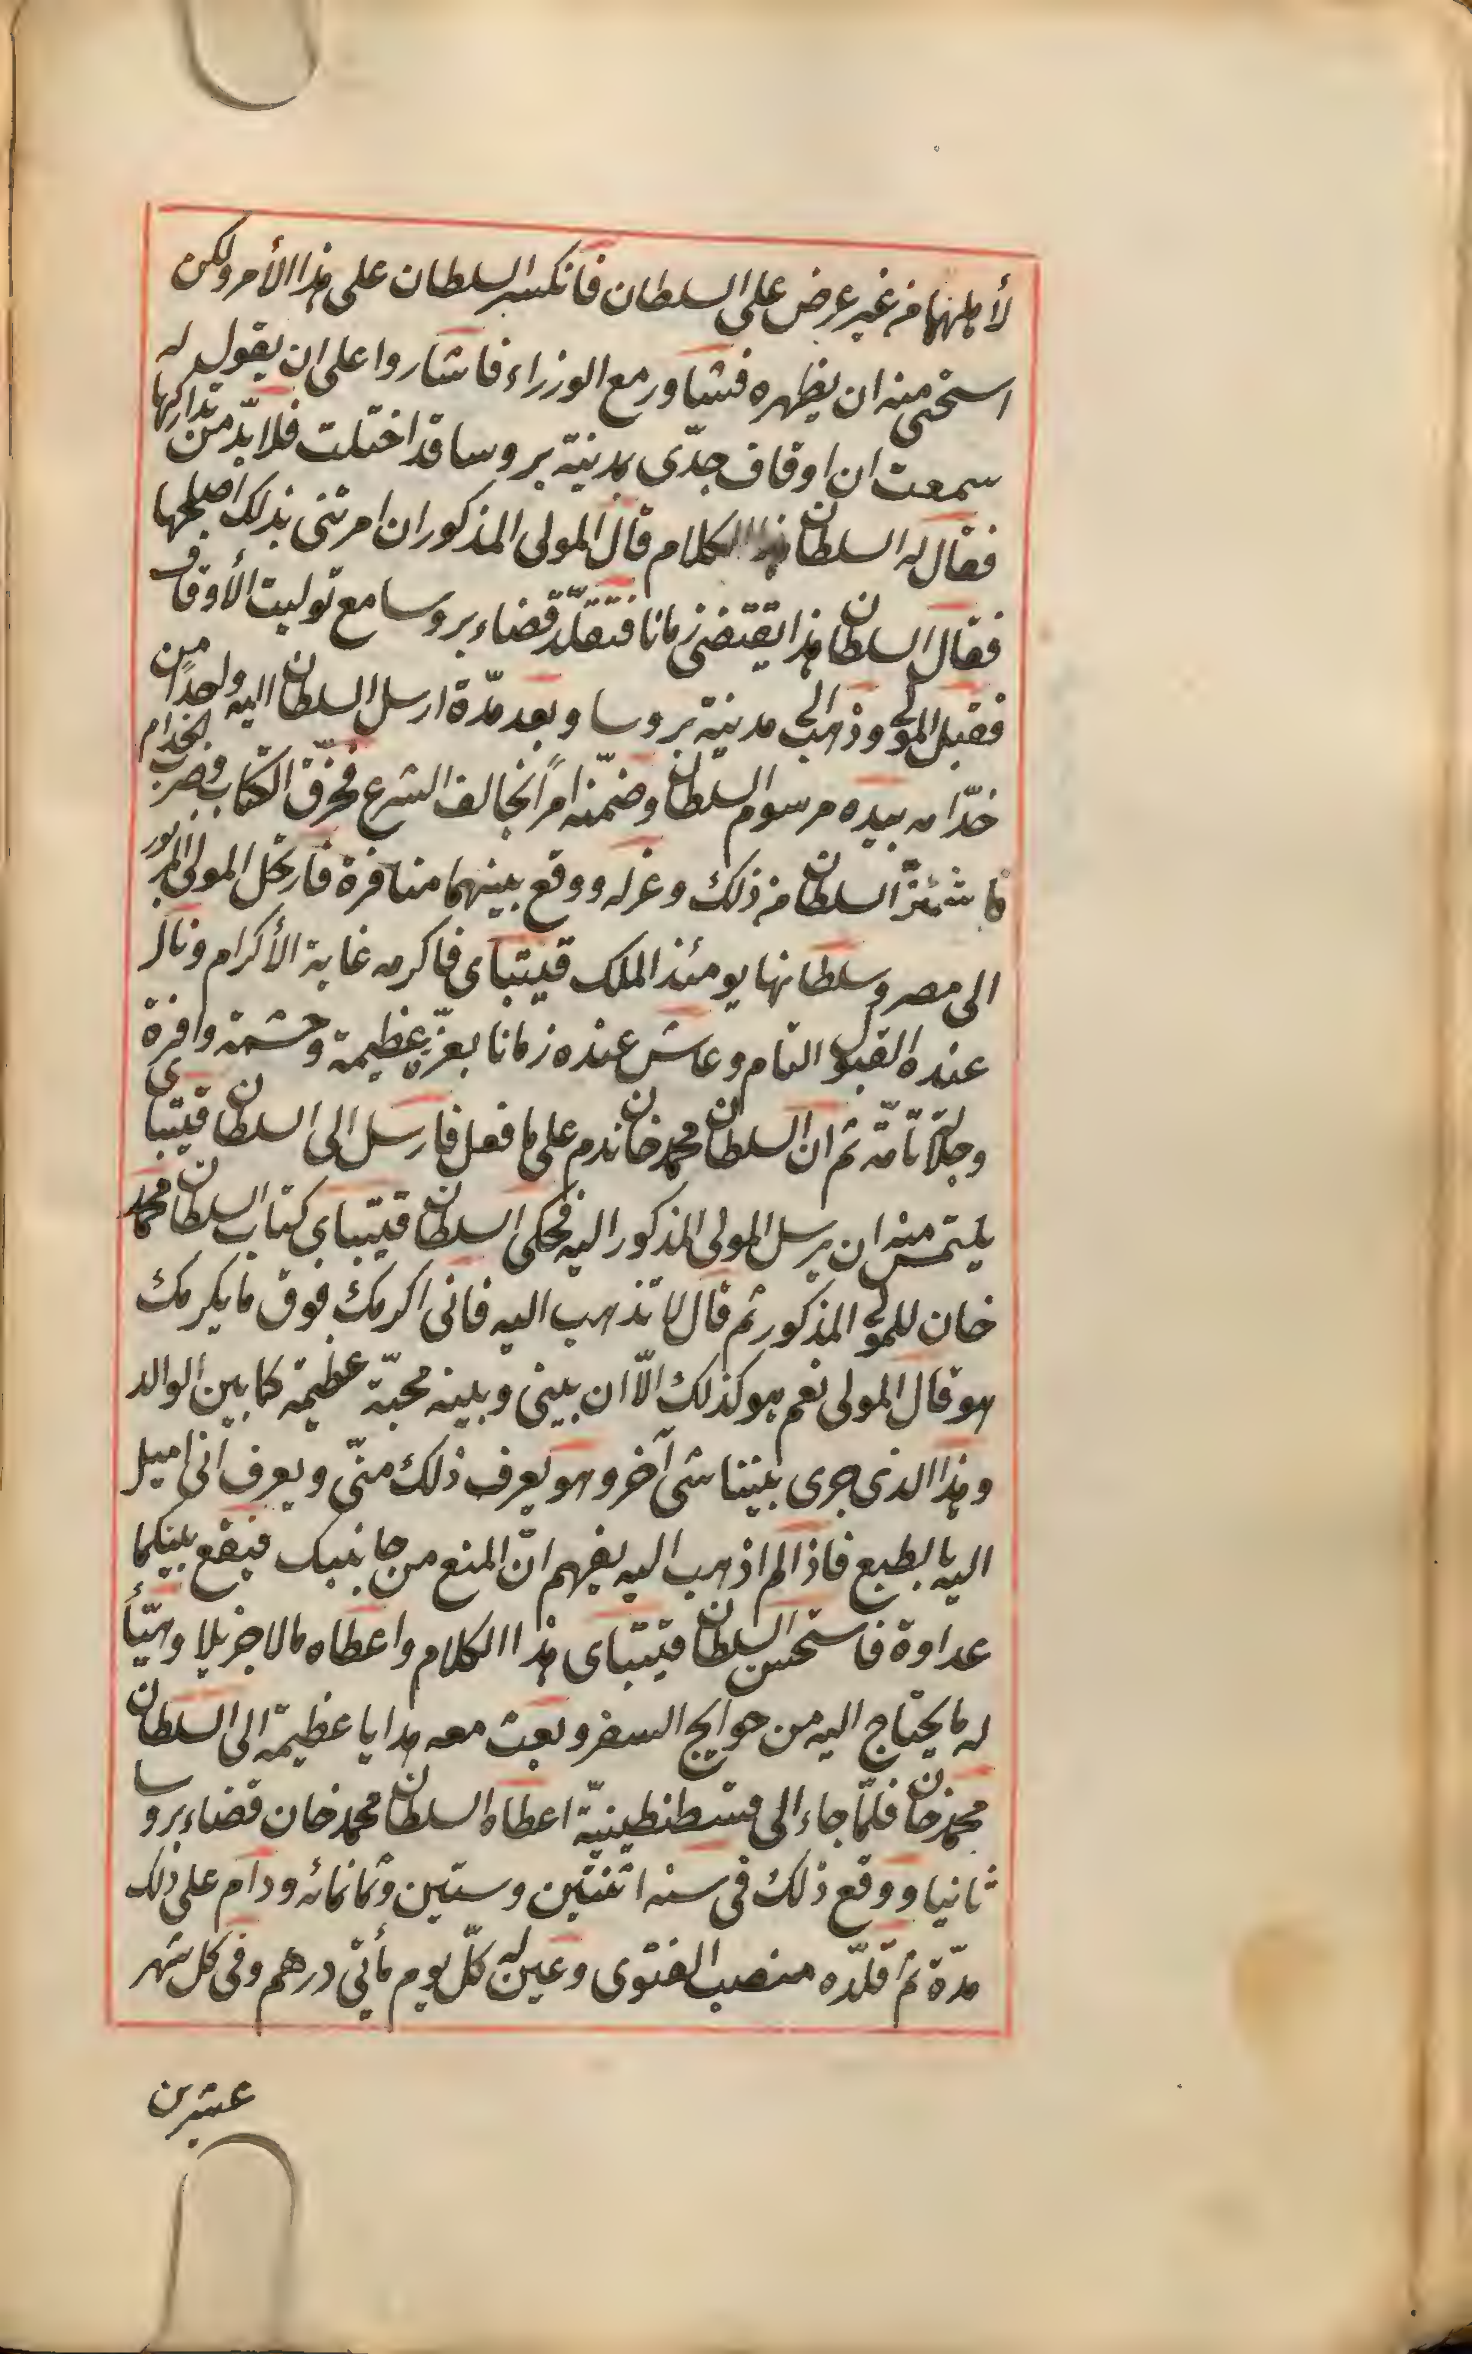 لأهلهما من غير عرض على السلطان فانكسر السلطان على هذا الأمر ولكن
استحى منه ان يظهره فشاور مع الوزراء فاشاروا على ان يقول له
سمعت ان اوقاف جدّى بمدينة بروسا قد اختلت فلا بدّ من تداركها
فقال له السلطان هذا الكلام قال المولى المذكور ان امرتنى بذلك اصلحها
فقال السلطان هذا يقتضى زمانا فتقلّد قضاء بروسا مع توليت الأوقاف
فقبل المولى وذهب الى مدينة بروسا وبعد مدّة ارسل السلطان اليه واحدا من
خدّامه بيده مرسوم السلطان وضمّنه امراً يخالف الشرع فخرّق الكتاب وضرب الخدام
فاشمئزّ السلطان من ذلك وعزله ووقع بينهما منافرة فارتحل المولى المزبور
الى مصر وسلطانها يومئذ الملك قيتباى فاكرمه غاية الأكرام ونال
عنده القبول التام وعاش عنده زمانا بعزّة عظيمة وحشمة وافرة
وجلالة تامّة ثم ان السلطان محمد خان ندم على ما فعل فارسل الى السلطان قيتباى
يلتمس منه ان يرسل المولى المذكور اليه فحكى السلطان قيتباى كتاب السلطان محمد
خان للمولى المذكور ثم قال لا تذهب اليه فانى اكرمك فوق ما يكرمك
هو قال المولى نعم هو كذلك الّا ان بينى وبينه محبّة عظيمة كما بين الوالد
وهذا الذى جرى بيننا شى آخر وهو يعرف ذلك منّى ويعرف انى اميل
اليه بالطبع فاذا لم اذهب اليه يفهم انّ المنع من جانبك فيقع بينكما
عداوة فاستحسن السلطان قيتباى هذا الكلام واعطاه مالا جزيلا وهيّأ
له ما يحتاج اليه من حوايج السفر وبعث معه هدايا عظيمة الى السلطان
محمد خان فلمّا جاء الى قسطنطينيّة اعطاه السلطان محمد خان قضاء بروسا
ثانيا ووقع ذلك فى سنه اثنتين وستين وثمانمائه ودام على ذلك
مدّة ثم قلّده منصب الفتوى وعين له كلّ يوم مأتى درهم وفى كل شهر
عشرين